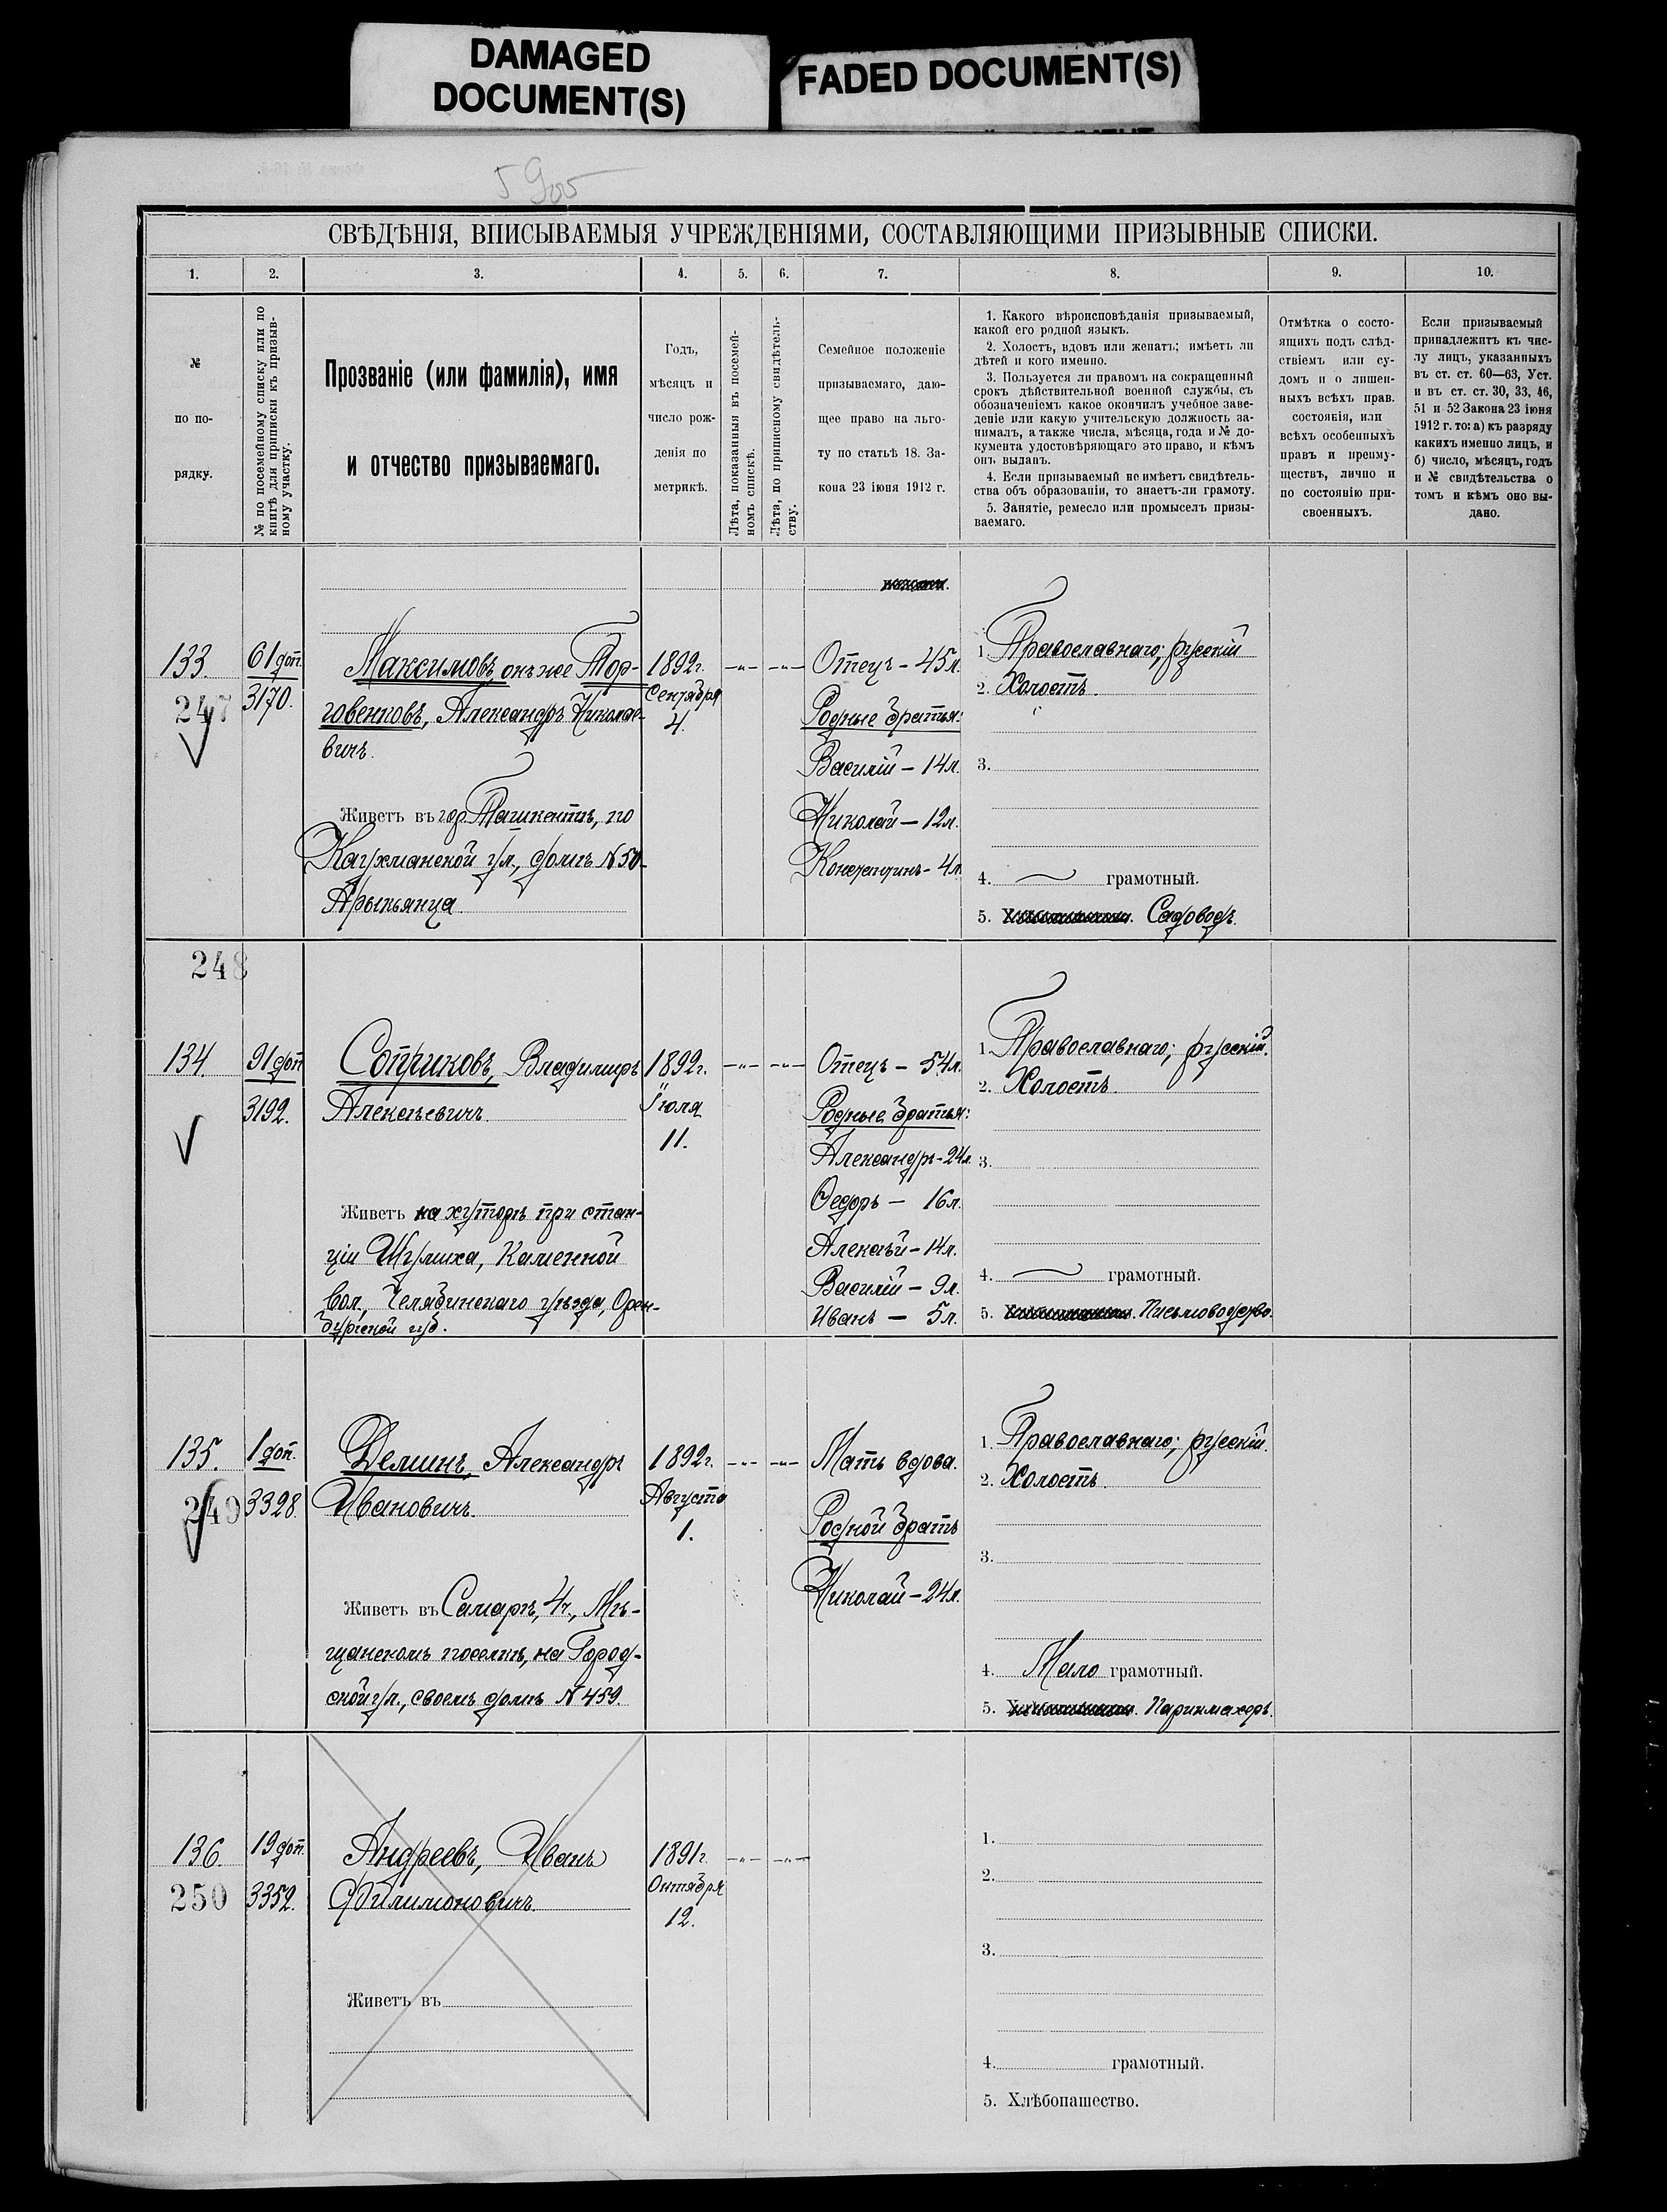 DAMAGED
DOCUMENT(S)
FADED DOCUMENT(S)
СВѢДѢНІЯ, ВПИСЫВАЕМЫЯ УЧРЕЖДЕНІЯМИ, СОСТАВЛЯЮЩИМИ ПРИЗЫВНЫЕ СПИСКИ.
1. 2. 3. 4. 5. 6. 7. 8. 9. 10.
№
по по-
рядку.
№ по посемейному списку или по
книгѣ для приписки къ призыв-
ному участку.
Прозваніе (или фамилія), имя
и отчество призываемаго.
Годъ,
мѣсяцъ и
число рож-
денія по
метрикѣ.
Лѣта, показанныя въ посемей-
номъ спискѣ.
Лѣта, по приписному свидѣтель-
ству.
Семейное положеніе
призываемаго, даю-
щее право на льго-
ту по статьѣ 18. За-
кона 23 іюня 1912 г.
1. Какого вѣроисповѣданія призываемый,
какой его родной языкъ.
2. Холостъ, вдовъ или женатъ; имѣетъ ли
дѣтей и кого именно.
3. Пользуется ли правомъ на сокращенный
срокъ дѣйствительной военной службы, съ
обозначеніемъ какое окончилъ учебное заве-
деніе или какую учительскую должность за-
нималъ, а также числа, мѣсяца, года и № до-
кумента удостовѣряющаго это право, и кѣмъ
онъ выданъ.
4. Если призываемый не имѣетъ свидѣтель-
ства объ образованіи, то знаетъ-ли грамоту.
5. Занятіе, ремесло или промыселъ призы-
ваемаго.
Отмѣтка о состо-
ящихъ подъ слѣд-
ствіемъ или су-
домъ и о лишен-
ныхъ всѣхъ прав.
состоянія, или
всѣхъ особенныхъ
правъ и преиму-
ществъ, лично и
по состоянію при-
своенныхъ.
Если призываемый
принадлежитъ къ чис-
лу лицъ, указанныхъ
въ ст. ст. 60—63, Уст.
и въ ст. ст. 30, 33, 46,
51 и 52 Закона 23 іюня
1912 г. то: а) къ разряду
какихъ именно лицъ, и
б) число, мѣсяцъ, годъ
и № свидѣтельства о
томъ и кѣмъ оно вы-
дано.
133.
247
61 доп.
3170.
Максимовъ, онъ же Тор-
говенковъ, Александръ Николае-
вичъ.
Живетъ въ гор. Ташкентѣ, по
ул., домъ № 50
1892г.
Сентября
4.
Отецъ – 45л.
Родные братья:
Василій – 14л.
Николай – 12л.
Константинъ – 4л.
1. Православнаго; русскій
2. Холостъ.
3.
4. грамотный.
5. Садоводъ.
248
134.
91 доп
3192.
Сотриковъ, Владиміръ
Алексѣевичъ.
Живетъ на хуторѣ при стан-
ціи Шумиха, Каменной
вол., Челябинскаго уѣзда, Орен-
бургской губ.
1892г.
Іюля
11.
Отецъ – 54л.
Родные братья:
Александръ – 24л.
Ѳедоръ – 16л.
Алексѣй – 14л.
Василій – 9л.
Иванъ – 5л.
1. Православнаго; русскій.
2. Холостъ.
3.
4. грамотный.
5. Письмоводство.
135.
249
1 доп.
3328.
Деминъ, Александръ
Ивановичъ.
Живетъ въ Самарѣ, 4ч., Мѣ-
щанскомъ поселкѣ, на Город-
ской ул., своемъ домѣ № 459.
1892г.
Августа
1.
Мать вдова.
Родной братъ
Николай – 24л.
1. Православнаго; русскій.
2. Холостъ.
3.
4. Мало грамотный.
5. Парикмахеръ.
136.
250
19 доп.
3352.
Андреевъ, Иванъ
Филимоновичъ.
Живетъ въ
1891г.
Октября
12.
1.
2.
3.
4. грамотный.
5. Хлѣбопашество.